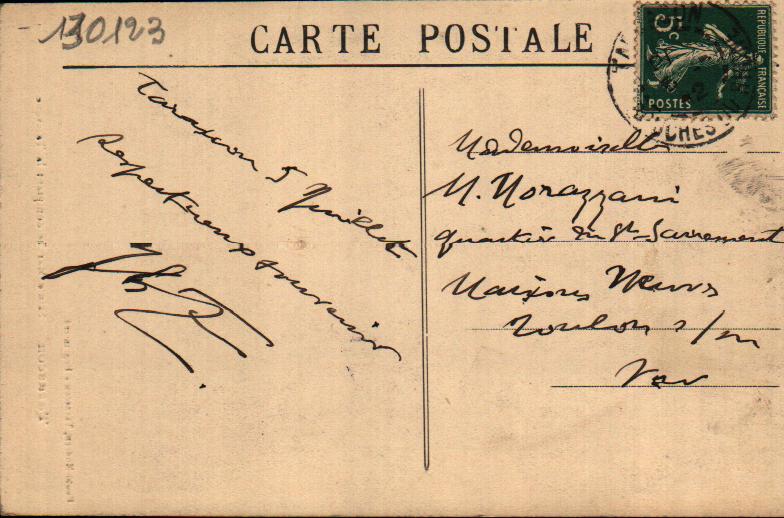 130123
CARTE POSTALE
RÉPUBLIQUE FRANÇAISE
5c
POSTES
Tarascon 5 Juillet
Respectueux souvenir
Mademoiselle
M. Morazzani
quartier du St Sacrement
Maisons Neuves
Toulon s/m
Var